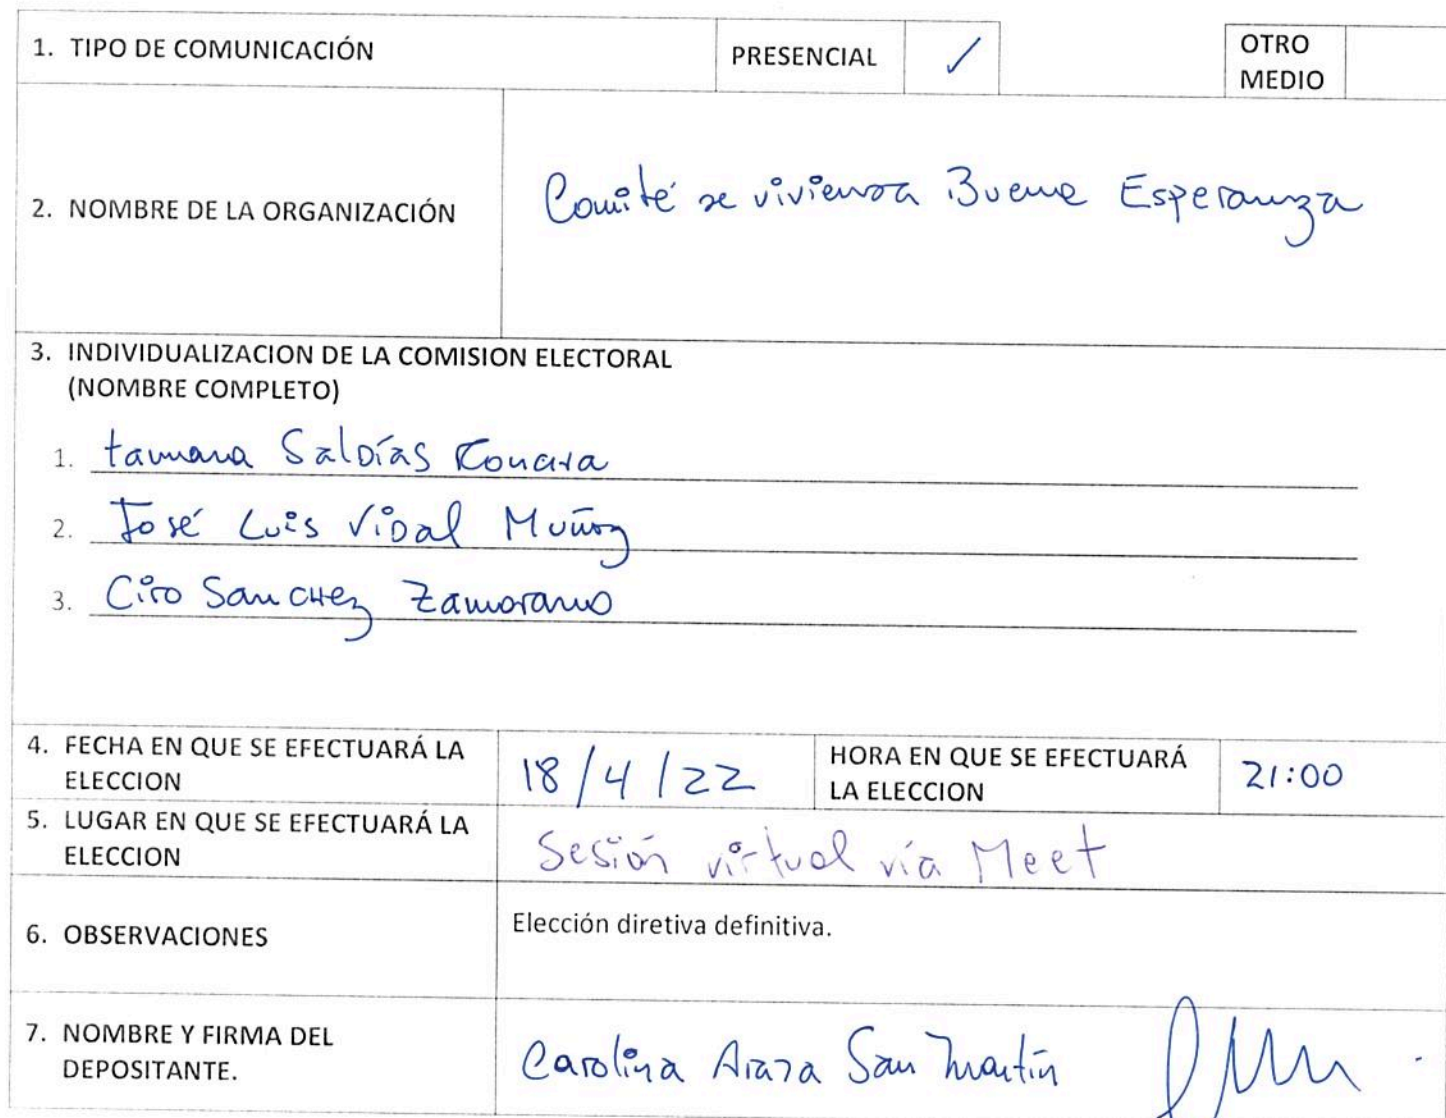 1. TIPO DE COMUNICACIÓN PRESENCIAL ✓ OTRO MEDIO
2. NOMBRE DE LA ORGANIZACIÓN Comité de vivienda Buena Esperanza
3. INDIVIDUALIZACION DE LA COMISION ELECTORAL
(NOMBRE COMPLETO)
1. tamara Saldías
2. José Luis Vidal Muñoz
3. Ciro Sanchez Zamorano
4. FECHA EN QUE SE EFECTUARÁ LA ELECCION 18/4/22 HORA EN QUE SE EFECTUARÁ LA ELECCION 21:00
5. LUGAR EN QUE SE EFECTUARÁ LA ELECCION Sesión virtual vía Meet
6. OBSERVACIONES Elección diretiva definitiva.
7. NOMBRE Y FIRMA DEL DEPOSITANTE. Carolina San Martín